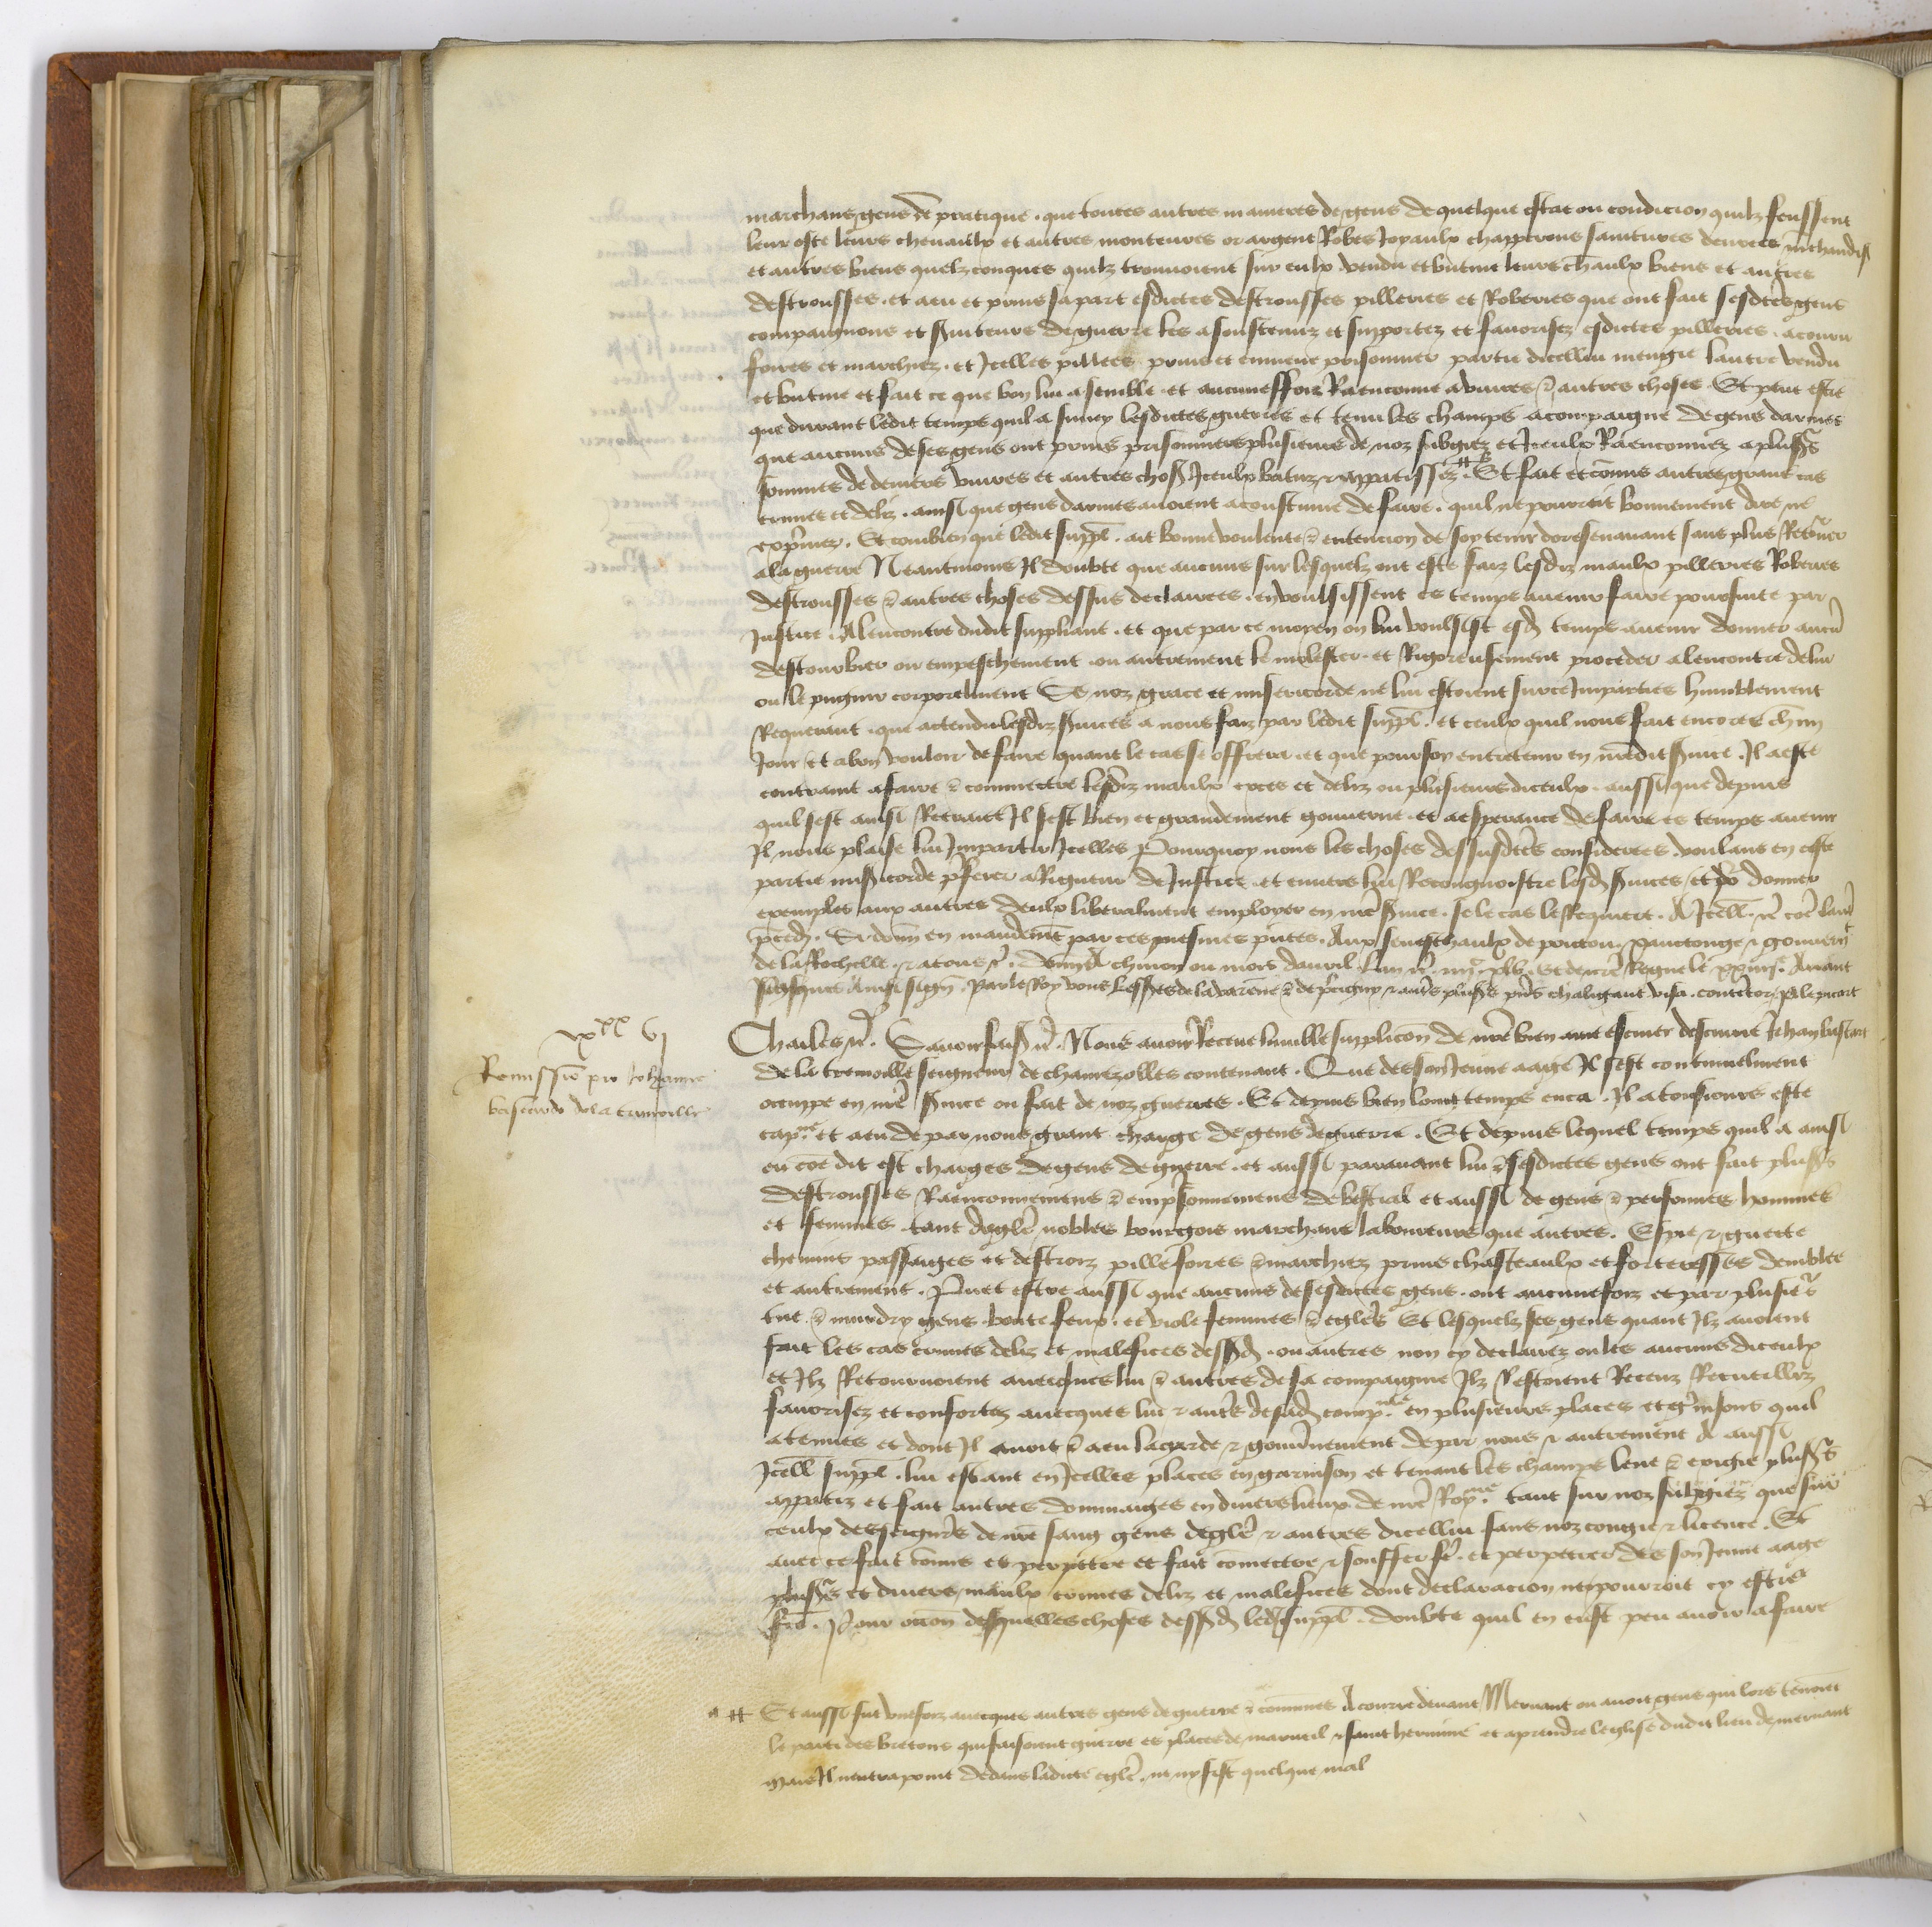 marchans gens de pratique . que toutes autres manieres de gens de quelque estat ou condicion quilz feussent
leur oste leurs chevaulx et autres monteures or argent Robes Joyaulx chapperons saintures denrees m̃chandis
et autres biens quelzconques quilz trouvoient sur eulx vendu et butine leurs chãulx biens et autres
destrousses . et a eu et prins sa part esdictes destrousses pilleries et Roberies que ont fait sesdctẽs gens
compaignons et s̃uiteurs de guerre les a soustenuz et supportez et favorisez esdictes pilleries . a couru
foires et marchiez . et Icelles pillees prins et enmene prisonnier partie dicellui mengie lautre vendu
et butine et fait ce que bon lui a semble . et aucuneffois Raenconne a vivres & autres choses . Et peut estre
que durant ledit temps quil a suivy lesdictes guerres et tenu les champs acompaigne de gens darmes
que aucuns de ses gens ont prins prisonniers plusieurs de noz subgiez et Iceulx Raenconnez a plus̃rs
sommes de deniers vivres et autres chos̃ Iceulx batuz & appatissez # . Et fait et cõmis autres grans cas
crimes et deliz . ainsi que gens darmes avoient acoustume de faire . quil ne pourroit bonnement dire ne
exp̃mer . Et combien que ledit supp̃l . ait bonne voulente & entencion de soy tenir doresenavant sans plus Retõner
a la guerre Neantmoins Il doubte que aucuns sur lesquelz ont este faiz lesdiz maulx pilleries Roberies
destrousses & autres choses dessus declairees . en voulsissent es temps avenir faire poursuite par
Justice . Alencontre dudit suppliant . et que par ce moyen on lui voulsist esd̃ temps avenir donner aucũ
destourbier ou empeschement . ou autrement le molester . et Rigoreusement proceder alencontre de lui
ou le pugnir corporelment Se noz grace et misericorde ne lui estoient sur ce Imparties humblement
Requerant . que actendu lesdiz s̃vices a nous faiz par ledit supp̃l . et ceulx quil nous fait encores ch̃un
Jour et a bon vouloir de faire quant le cas se offrera . et que pour soy entretenir en nr̃edit s̃vice Il a este
contraint a faire & commectre lesdiz maulx exces et deliz ou plusieurs diceulx . aussi que depuis
quil sest ainsi Retrait Il sest bien et grandement gouverne . et a esperance de faire es temps avenir
Il nous plaise lui Impartir Icelles Pourquoy nous les choses dessusdctẽs considerees . voulans en ceste
partie mis̃icorde p̃ferer a Rigueur de Justice . et envers lui Recongnoistre lesd̃ s̃vices et po᷑ donner
exemples aux autres deulx liberalment employer en nr̃e s̃vice . se le cas le Requiert . A Icell̃ . &c̃ cõe la
p̃ced̃ . Si donñ en mandem̃t par ces mesmes p̃ntes . Aux seneschaulx de poictou . xanctonge & gouverñ
de la Rochelle . & a tous &c̃ . donñ A chinon ou mois davril . Lan &c̃ . iiijc xlv . et de nr̃e Regne le xxiiije . Avant
pasques Ainsi sign̄ . Par le Roy vous Les s̃rs de la varenne & de p̃cigny & aut̃s plus̃rs p̃ns chaligaut visa . contẽtor . P. le picart
Charles &c̃ . Savoir fais̃ &c̃ . Nous avoir Receue lumble supplicaõn de nr̃e bien ame escuier descuierie Jehan bastart
de la tremoille seigneur de chamezolles contenant . Que des son Jeune aage Il sest continuelment
occuppe en nr̃e s̃vice ou fait de noz guerres . Et depuis bien long temps enca . Il a tousiours este
cap.ne et a eu de par nous grant charge de gens de guerre . Et depuis lequel temps quil a ainsi
eu cõe dit est charges de gens de guerre . et aussi paravant lui & sesdictes gens ont fait plus̃rs
destrousses Raenconnemens & emp̃sonnemens de bestial et aussi de gens & personnes hommes
et femmes . tant deglẽ nobles bourgois marchans laboureurs que autres . Espie & guecte
chemins passaiges et destroiz pille foires & marchiez prins chasteaulx et forteresses demblee
et autrement . Puet estre aussi que aucuns de sesdictes gens . ont aucunefoiz et par plusiẽs
tue & murdry gens . boute feux . et viole femmes & eglẽs Et lesquelz ses gens quant Ilz avoient
fait les cas crimes deliz et malefices dess̃d̃ . ou autres non cy declairez ou les aucuns diceulx
et Ilz Retournoient avecques lui & autres de sa compaignie Ilz Restoient Receuz Recueilliz
favorisez et confortez avecques lui & autres de sad̃ comp.nie en plusieurs places et g̃nisons quil
a tenues et dont Il avoit & a eu la garde & gouṽnement de par nous & autrement A aussi
Icell̃ supp̃l . lui estant en Icelles places en garnison et tenant les champs leve & exigie plus̃rs
appatiz et fait autres dommaiges en divers lieux de nr̃e Roy.me tant sur noz subgiez que sur
ceulx des seignr̃s de nr̃e sang gens deglẽ & autres dicellui sans noz congie & licence . Et
avec ce fait cõmis et perpetre et fait cõmectre & souffert fẽ . et perpetrer des son Jeune aage
plus̃rs et divers maulx crimes deliz et malefices dont declaracion ne pourroit cy estre
fcẽ . Pour occõn desquelles choses dess̃d̃ led̃ supp̃l . doubte quil en eust peu avoir a faire
vixx vj
Remissio pro Johanne
bastardo de la trimoille
# Et aussi fut unefoiz avecques autres gens de guerre & cõmunes A courre devant Mervant ou avoit gens qui lors tenoiẽt
le parti des bretons qui faisoient guerre es places de mareuil & saint hermine et a prendre leglise dudit lieu de mervant
mais Il nentra point dedans ladicte eglẽ . ne ny fist quelque mal